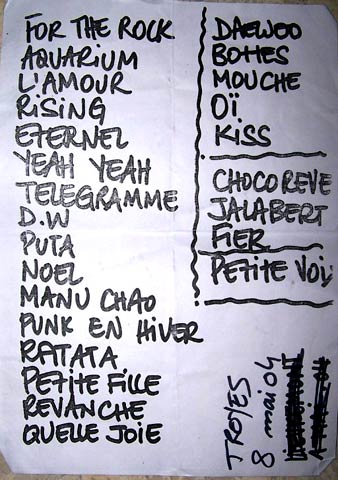 FOR THE ROCK
AQUARIUM
L'AMOUR
RISING
ETERNEL
YEAH YEAH
TELEGRAMME
D.W
PUTA
NOEL
MANU CHAO
PUNK EN HIVER
RATATA
PETITE FILLE
REVANCHE
QUELLE JOIE
DAEWOO
BOTTES
MOUCHE
OÏ
KISS
CHOCOREVE
JALABERT
FIER
PETITE VOIX
TROYES
8 mai 04